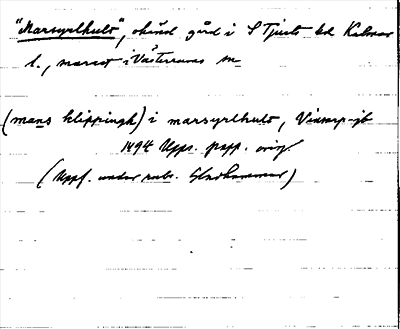 "Marsyrlhult", okänd gård i S Tjusts hd Kalmar
l., narest i Västerums sn
(mans klippingh) i marsyrlhult, Vinsarp-jb
1494 Upps. papp. orig.
(Uppf. under rubr. Gladhammar)